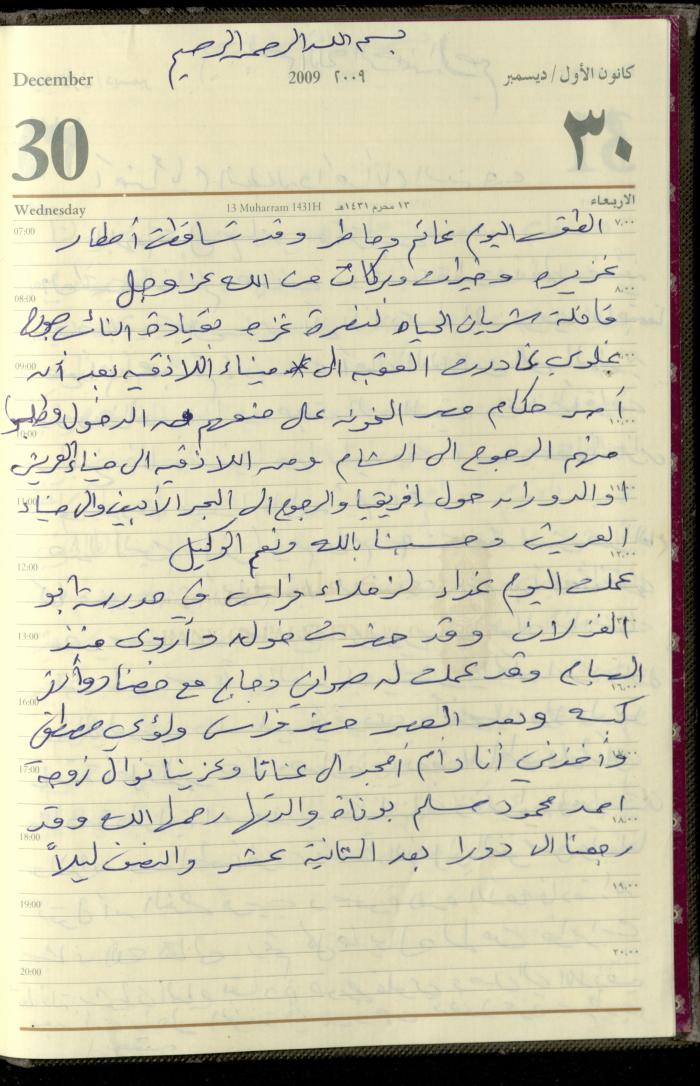 بسم الله الرحمن الرحيم
December
2009 ٢٠٠٩
كانون الأول / ديسمبر
30
٣٠
Wednesday
13 Muharram 1431H ١٣ محرم ١٤٣١هـ
الاربعاء
07:00 ٧,٠٠
الطقس اليوم غائم وماطر وقد تساقطت أمطار
غزيره وخيرات وبركات من الله عز وجل
08:00 ٨,٠٠
قافلة شريان الحياه لنصرة غزه بقيادة النائب جورج
غلوي غادرت العقبه الى ميناء اللاذقيه بعد أن
09:00
أصر حكام مصر الخونه على منعهم من الدخول وطلبوا
10:00 ١٠,٠٠
منهم الرجوع الى الشام ومن اللاذقيه الى ميناء العريش
او الدوران حول إفريقيا والرجوع الى البحر الأبيض والى ميناء
11:00 ١١,٠٠
العريش وحسبنا بالله ونعم الوكيل
12:00 ١٢,٠٠
عملت اليوم غداء لزملاء فراس في مدرسة ابو
الغزلان وقد حضرت خوله وأروى منذ
13:00
الصباح وقد عملت له صواني دجاج مع خضار و
16:00 ١٦,٠٠
كبسه وبعد العصر حضر فراس ولؤي مصطفى
وأخذني أنا وأم أمجد الى عناتا وعزينا نوال زوجة
17:00 ١٧,٠٠
احمد محمود مسلم بوفاة والدتها رحمها الله وقد
18:00 ١٨,٠٠
رجعنا الى دورا بعد الثانية عشر والنصف ليلاً
19:00 ١٩,٠٠
20:00 ٢٠,٠٠